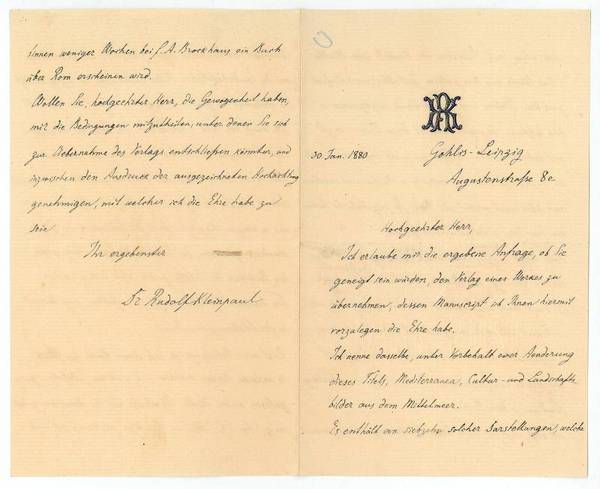 30 Jan. 1880
Gohlis-Leipzig
Augustenstraße 8c
Hochgeehrter Herr,
Ich erlaube mir die ergebene Anfrage, ob Sie
geneigt sein würden, den Verlag eines Werkes zu
übernehmen, dessen Manuscript ich Ihnen hiermit
vorzulegen die Ehre habe.
Ich nenne dasselbe, unter Vorbehalt einer Aenderung
dieses Titels, Mediterranea, Cultur- und Landschafts
bilder aus dem Mittelmeer.
Es enthält an siebzehn solcher Darstellungen, welche
binnen weniger Wochen bei F. A. Brockhaus ein Buch
über Rom erscheinen wird.
Wollen Sie, hochgeehrter Herr, die Gewogenheit haben,
mir die Bedingungen mitzutheilen, unter denen Sie sich
zur Uebernahme des Verlags entschließen könnten, und
inzwischen den Ausdruck der ausgezeichneten Hochachtung
genehmigen, mit welcher ich die Ehre habe zu
sein
Ihr ergebenster
Dr Rudolf Kleinpaul